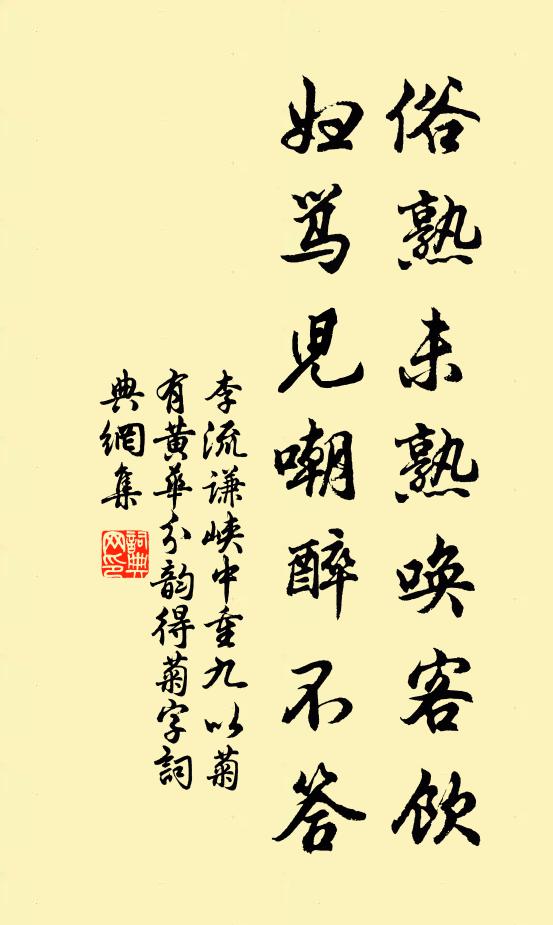 俗熟未熟唤客飲
妇骂児嘲醉不答
李流谦峡中重九以菊
有黄華分韵得菊字詞
典網集
詞典网印